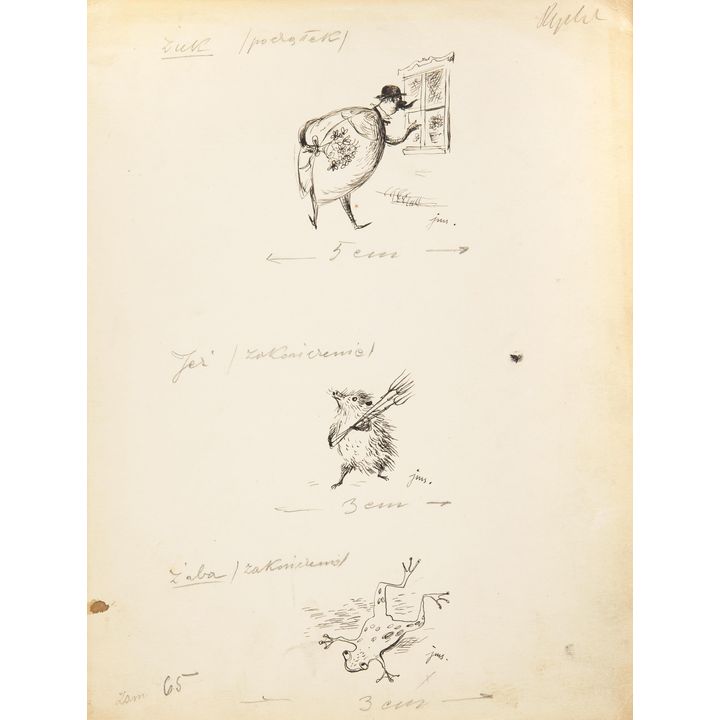 Żuk /początek/
jms.
5 cm
Jeż /zakończenie/
jms.
3 cm
Żaba /zakończenie/
jms.
zam 65
3 cm